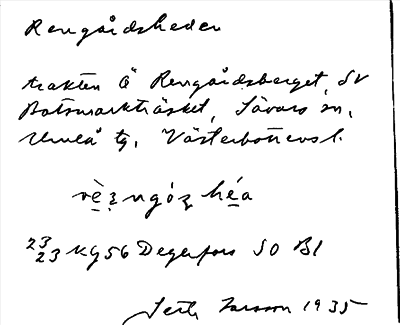 Rengårdsheden
trakten Ö Rengårdsberget, SV
Botsmarkträsket, Sävars sn,
Umeå tg, Västerbottens l.
rè̱ʒngó̱ʒ hé̱a
23/23 Kg 56 Degerfors SO Bl
Larsson 1935